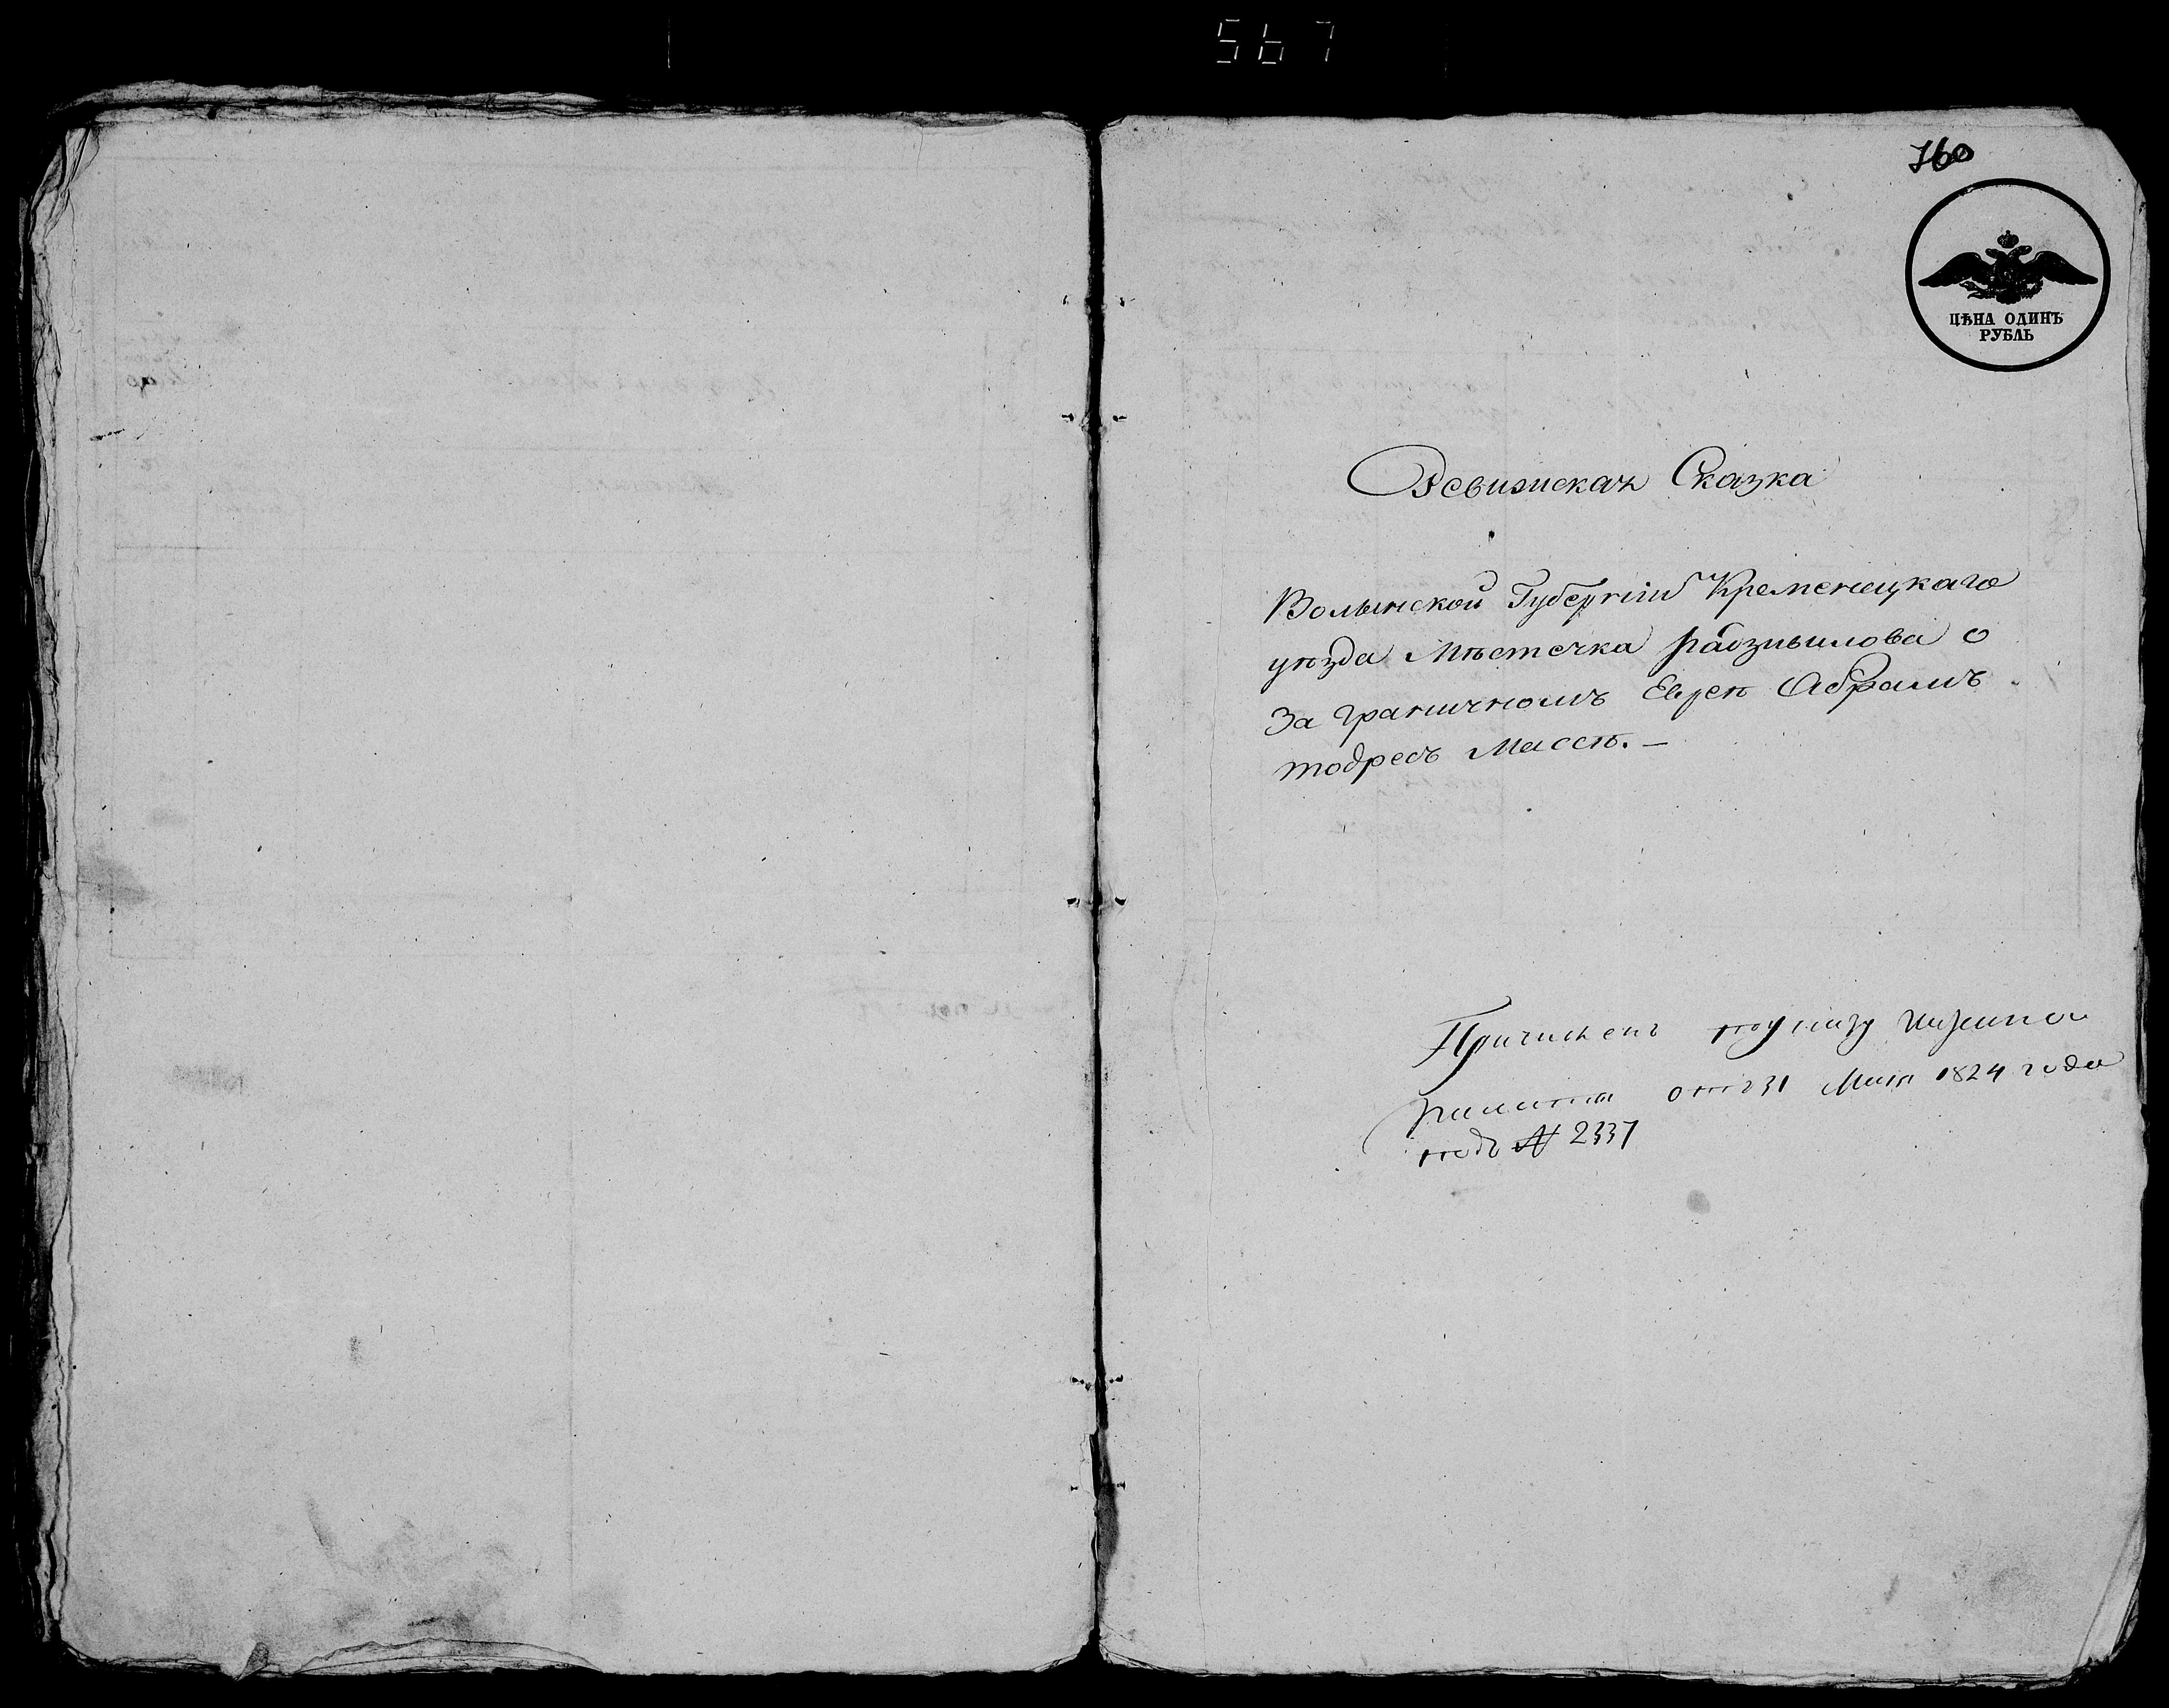 567
760
ЦѢНА ОДИНЪ
РУБЛЬ
Ревижская Сказка
Волынской Губерніи Кременецкаго
уѣзда Мѣстечка Радзивилова о
За граничномъ Евреѣ Абрамъ
тодресъ Массѣ. —
Причисленъ по указу
палаты отъ 31 Мая 1824 года
подъ № 2337